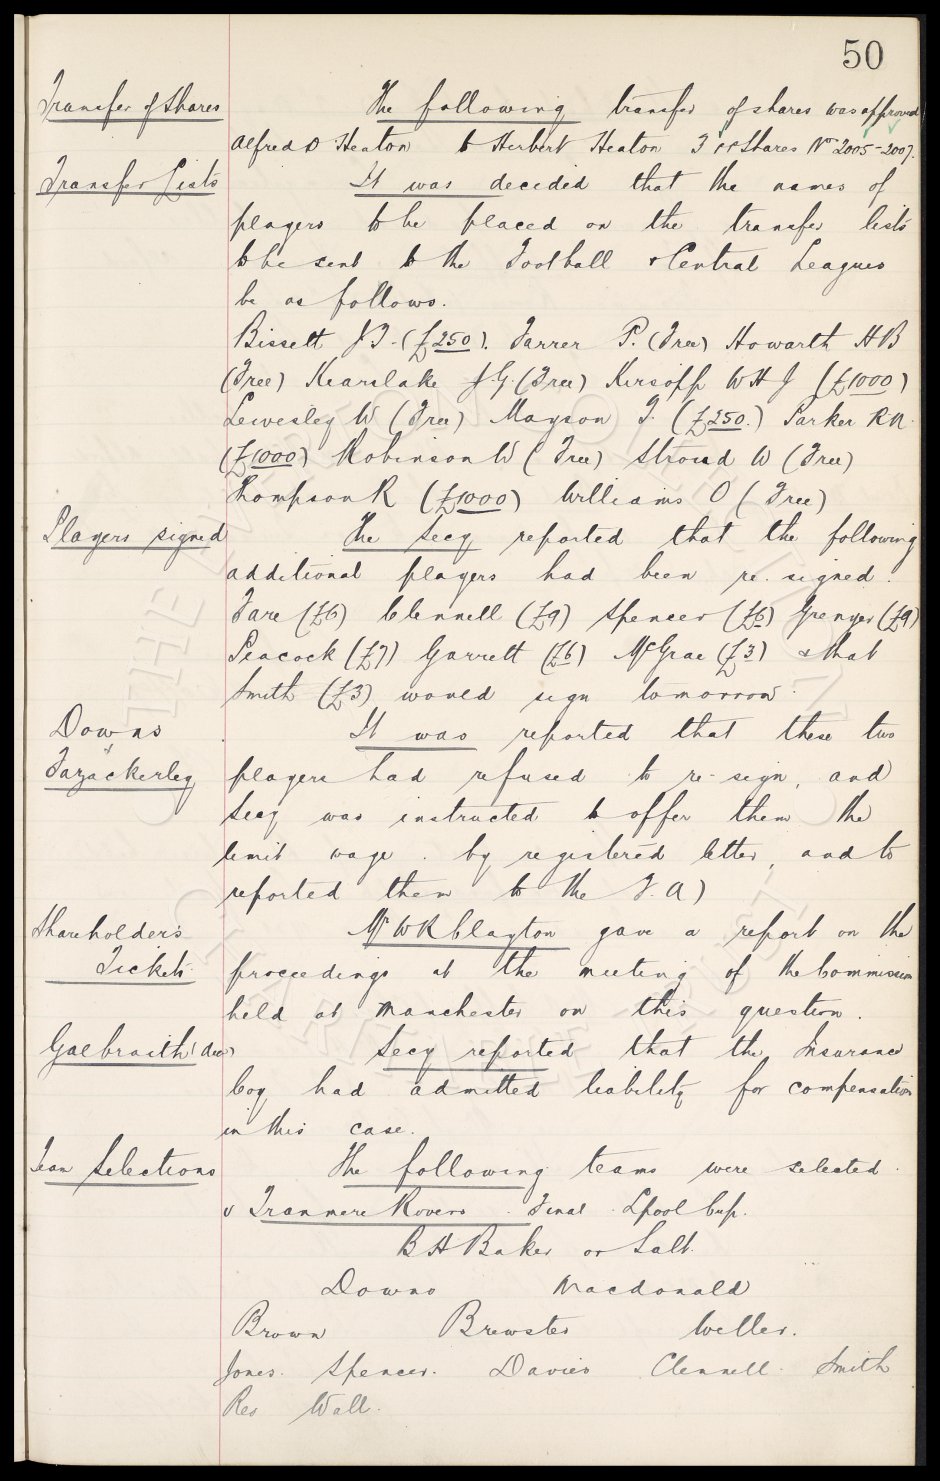 50
Transfer of Shares
The following transfer of shares was approved
Alfred D Heaton to Herbert Heaton 3 Shares Nos 2005-2007.
Transfer Lists
It was decided that the names of
players to be placed on the transfer lists
to be sent to the Football & Central Leagues
be as follows.
Bissett J T. (£250). Farrer P. (Free) Howarth H B
(Free) Kearslake J. G. (Free) Kirsopp W H J (£1000)
Lewesley W (Free) Mayson T. (£250.) Parker R N.
(£1000) Robinson W (Free) Stroud W (Free)
Thompson R (£1000) Williams O (Free)
Players signed
The Secy reported that the following
additional players had been re. signed.
Fare (£6) Clennell (£9) Spencer (£6) Grenyer (£9)
Peacock (£7) Garrett (£6) McGrae (£3) & that
Smith (£3) would sign tomorrow.
Downs
"
Fazackerley
It was reported that these two
players had refused to re-sign, and
Secy was instructed to offer them the
limit wage. by registered letter, and to
reported them to the F.A)
Shareholders
Tickets
Mr W R Clayton gave a report on the
proceedings at the meeting of the Commission
held at Manchester on this question.
Galbraith (dec)
Secy reported that the Insurance
Coy had admitted liability for compensation
in this case.
Team Selections
The following teams were selected.
v Tranmere Rovers. Final. Lpool Cup.
B H Baker or Salt.
Downs Macdonald
Brown Brewster Weller.
Jones. Spencer. Davies Clennell. Smith
Res Wall.